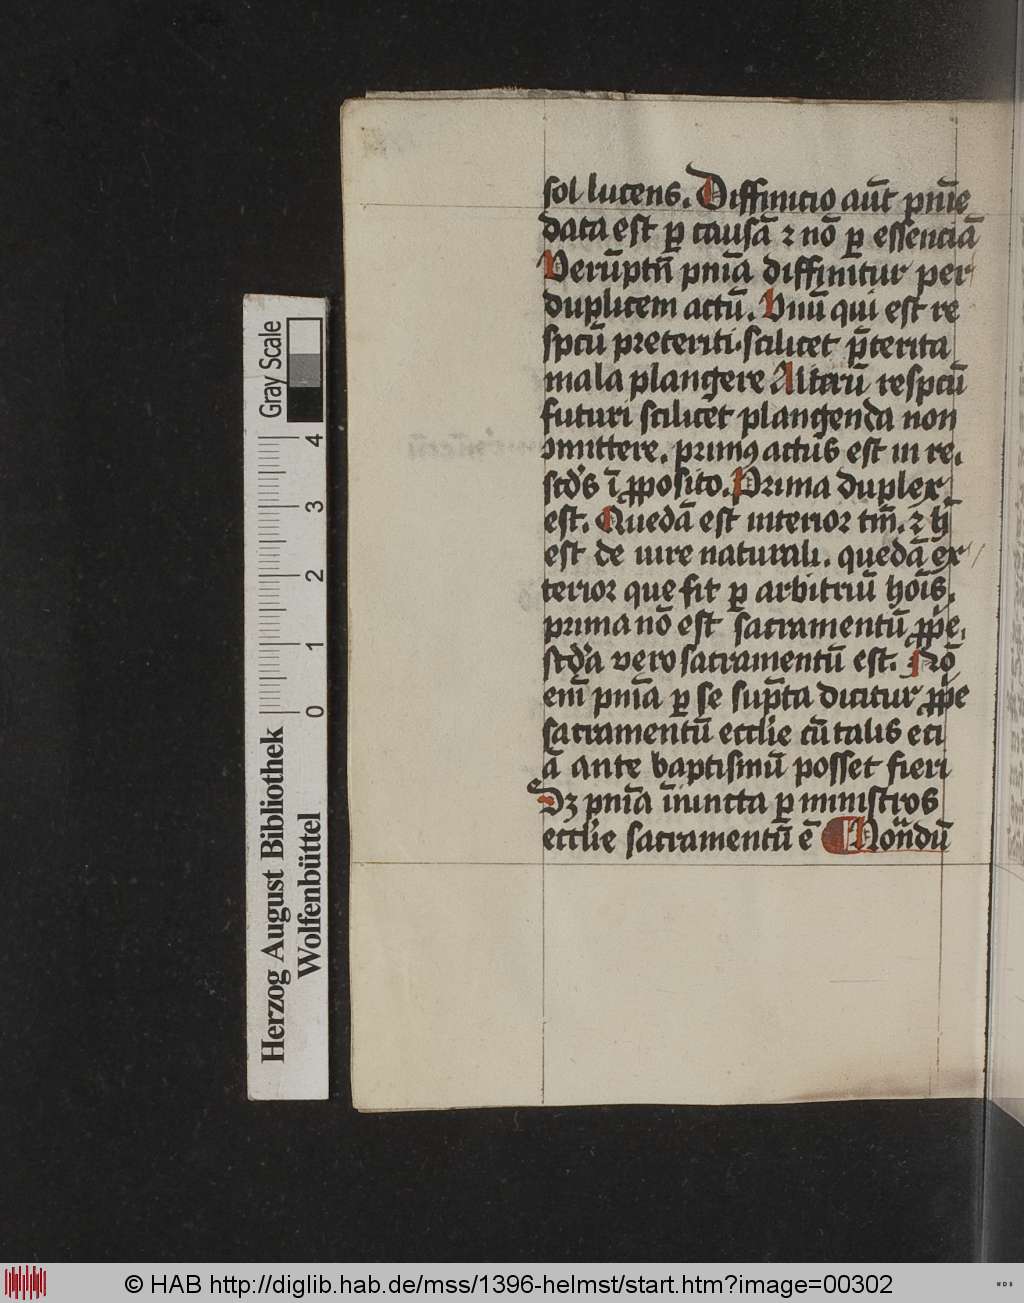 sol lucens. Diffinicio aūt pnīe
data est ꝑ causā ⁊ nō ꝑ essenciā
Verūptn̄ pnīa diffinitur per
duplicem actū. Vnū qui est re
spcū preteriti. scilicet p̄terita
mala plangere Alterū respcū
futuri scilicet plangenda non
ꝯmittere. primꝰ actus est in re.
scd̓s ī ꝓposito. Prima duplex
est. Quedā est interior tm̄. ⁊ h̄
est de iure naturali. quedā ex
terior que fit ꝑ arbitriū hoīs.
prima nō est sacramentū ꝓpe.
scd̓a vero sacramentū est. Nō
em̄ pnīa ꝑ se sup̄ta dicitur ꝓpe
sacramentū ecclie cū talis eci
ā ante baptismū posset fieri
Sꝫ pnīa īiuncta ꝑ ministros
ecclie sacramentū ē Non̄dū
Gray Scale
0 1 2 3 4
Herzog August Bibliothek
Wolfenbüttel
© HAB http://diglib.hab.de/mss/1396-helmst/start.htm?image=00302
WDB